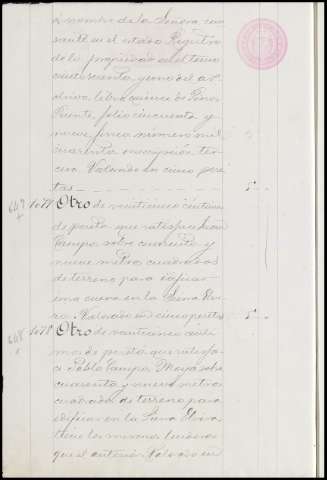 á nombre de la Señora cau
sante en el citado Registro
de la propiedad en el tomo
cuatrocientos y uno del ar
chivo, libro quince de Pinos
Puente, folio cincuenta y
nueve, finca número mil
cuarenta inscripción ter
cera. Valorado en cinco pese
tas 5"
647 1077 Otro de veinticinco céntimos
de peseta que satisface Juan
Campos sobre cuarenta y
nueve metros cuadrados
de terreno para edificar
una cueva en la Sierra Elvi
ra. Valorado en cinco pesetas 5"
648 1078 Otro de veinticinco cénti
mos de peseta que satisfa
ce Pablo Campos Moya sobre
cuarenta y nueve metros
cuadrados de terreno para
edificar en la Sierra Elvira,
tiene los mismos linderos
que el anterior. Valorado en